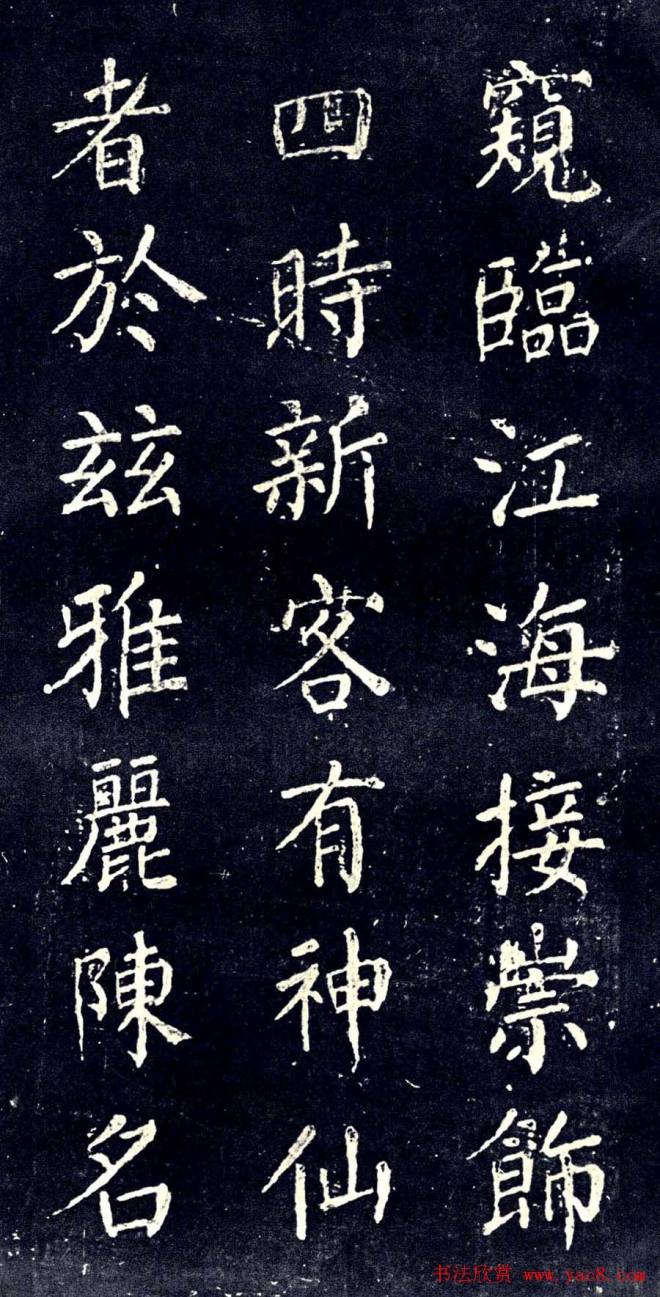 窺臨江海接崇飾
四時新客有神仙
者於玆雅麗陳名
书法欣赏 www.yac8.com